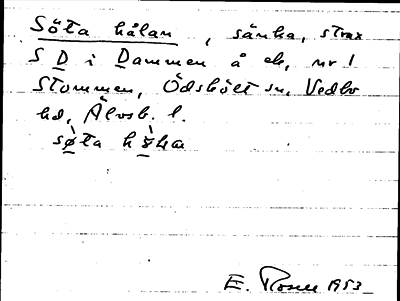 Söta hålan, sänka, strax
S D i Dammen å ek. nr 1
Stommen, Ödskölt sn, Vedbo
hd, Älvsb. l.
söta
E. Rosell 1953